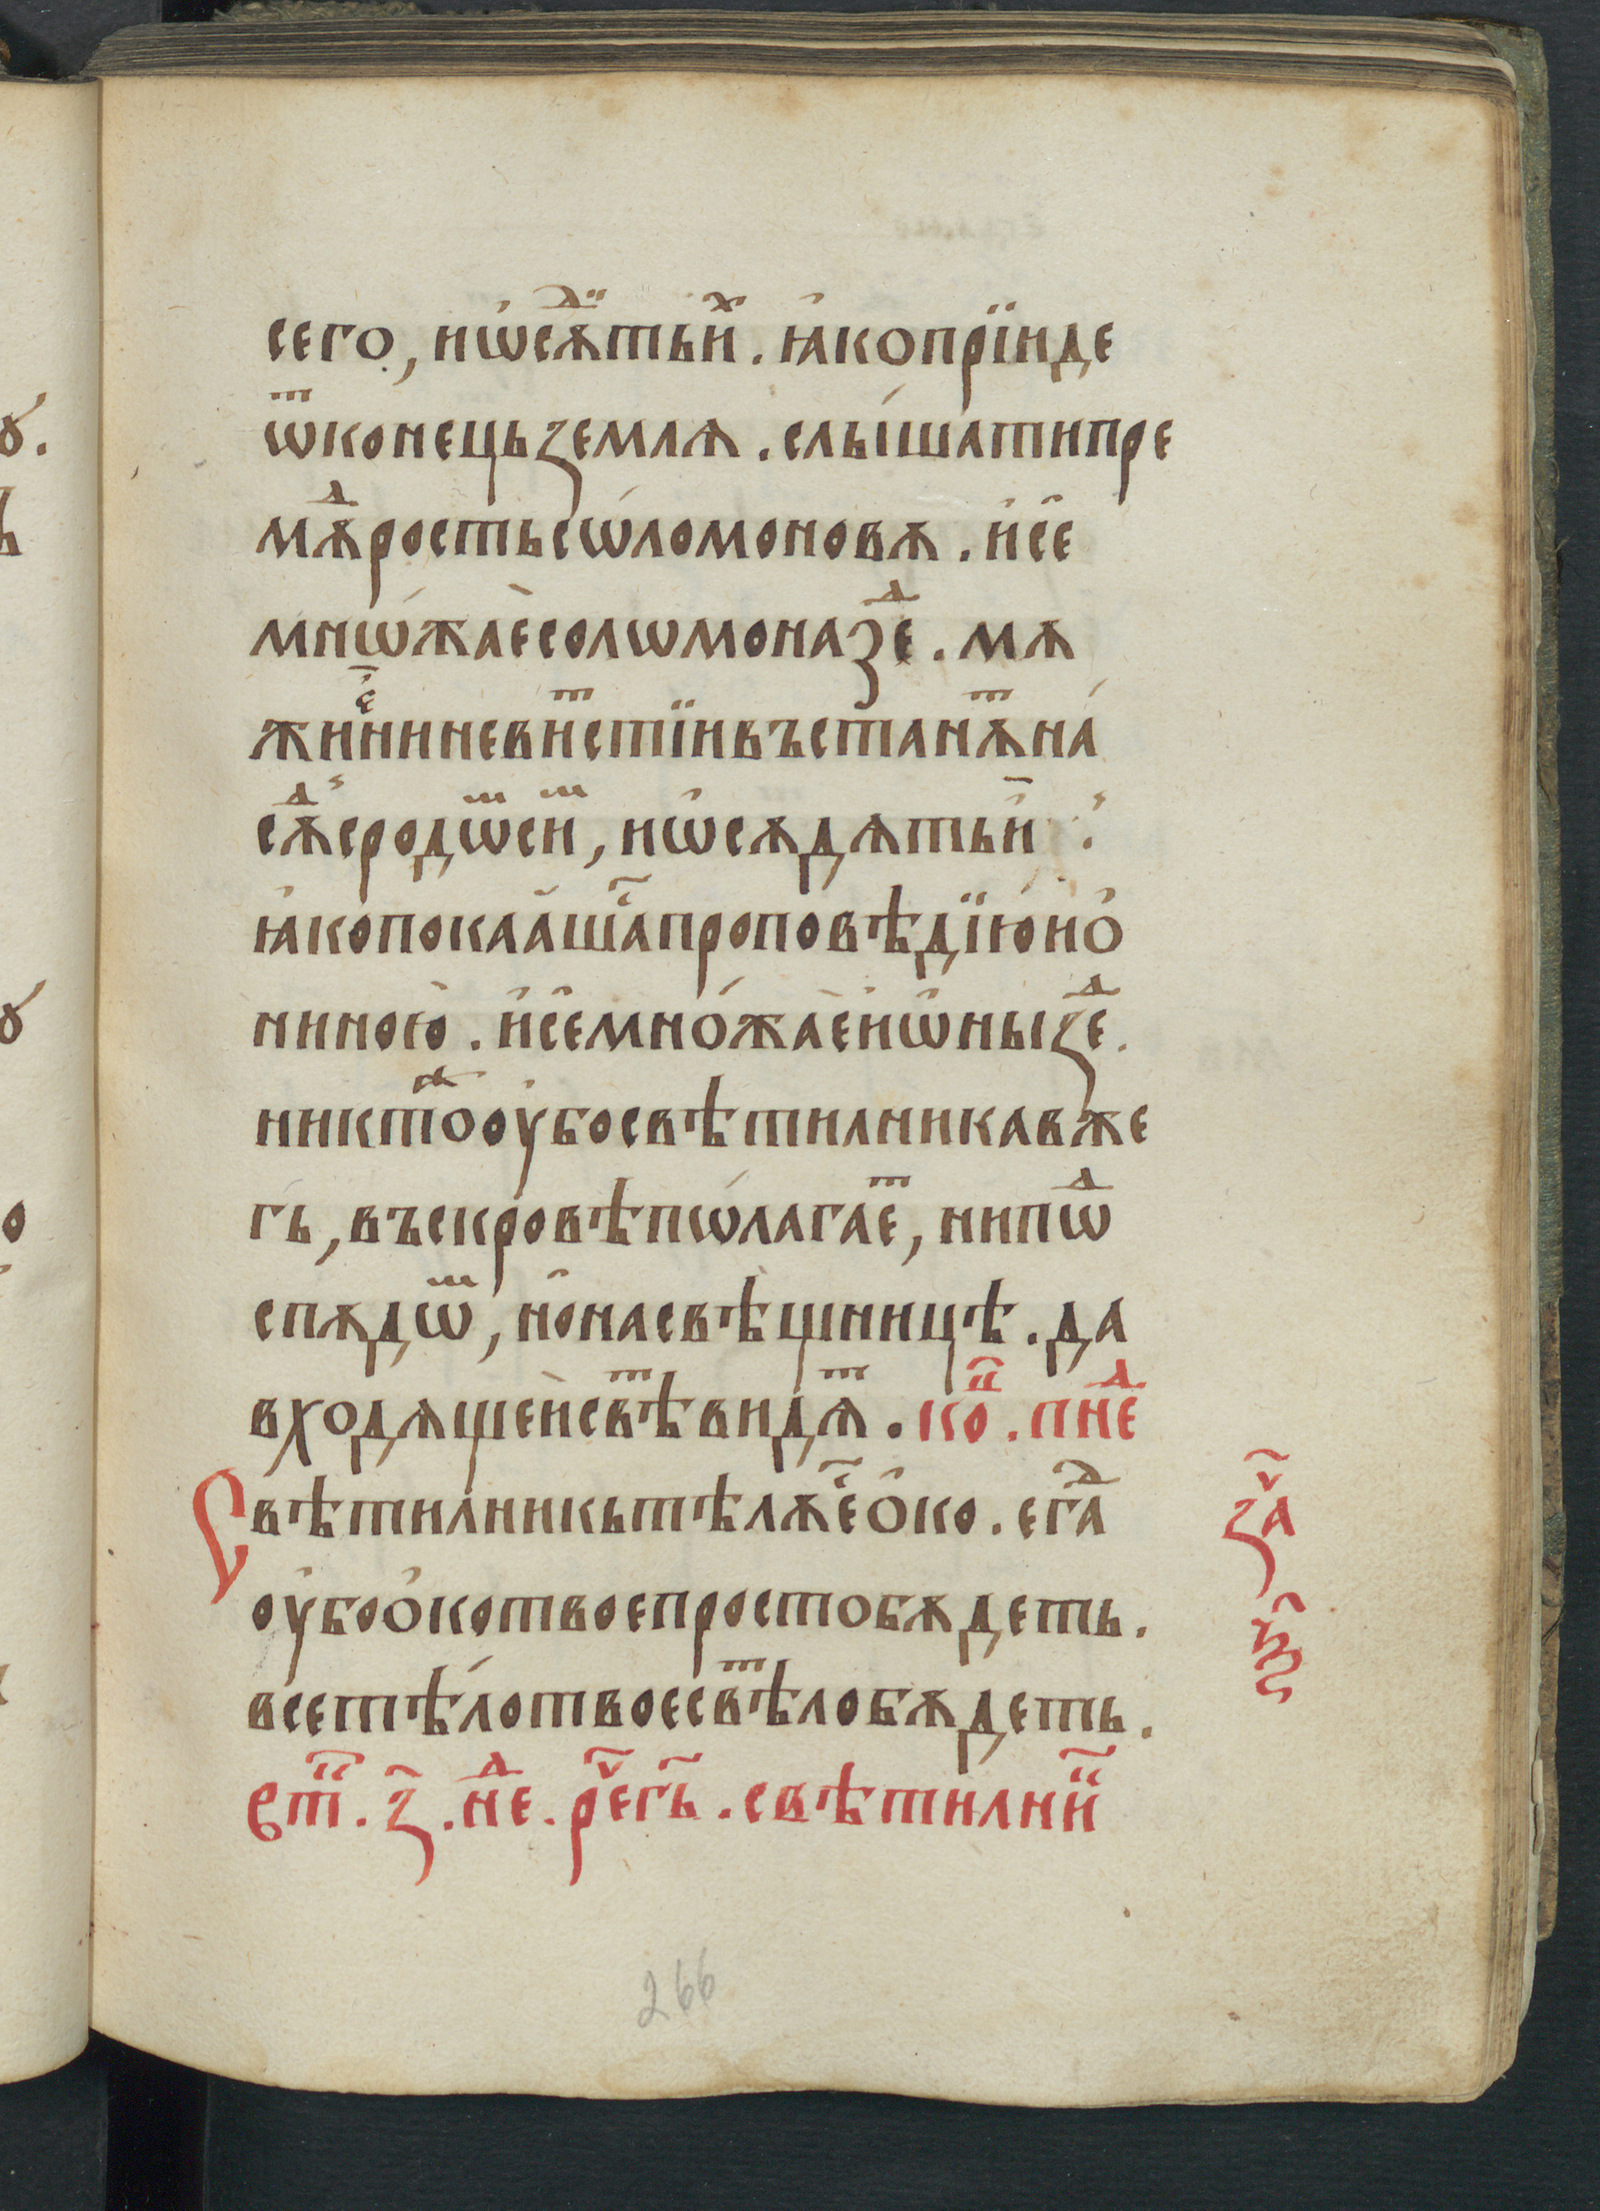 сего, и҆ѡ҆сѫⷣтьиⷯ. ꙗ҆ко прїиде
ѿ конець землѧ. слы́шати пре
мѫⷣрость сѡ́ломоновѫ. и҆ се҆
мнѡ́жае҆ солѡмона зⷣе. мѫ
жиⷤ ниневиⷮстїи въстанѫⷮ на́
сѫⷣ с родѡⷨ сиⷨ, и҆ ѡ҆сѫдѧть и҆ :
ꙗ҆ко покааша҆ⷭ проповѣдїю и҆о҆
ниною. и҆ се҆ мно́жае҆ и҆ѡ҆ны зⷣе.
никтоⷤ оу҆бо свѣтилника вже
гь, въ скровѣ пѡ́лагаеⷮ, ни пѡⷣ
спѫдѡⷨ, но҆ на свѣщницѣ. да
входѧщеи свѣⷮ видѧⷮ. коⷩ҇. пнеⷣ
Свѣтилникь тѣлѫ еⷭ҇ о҆ко. егⷣа
оу҆бо о҆ко твое просто бѫдеть.
все тѣ́ло твое свѣⷮло бѫдеть.
єѵⷢ҇. з҃. неⷣ. рече гь҃. свѣтилниⷦ
заⷱ҇
н҃ѕ
266